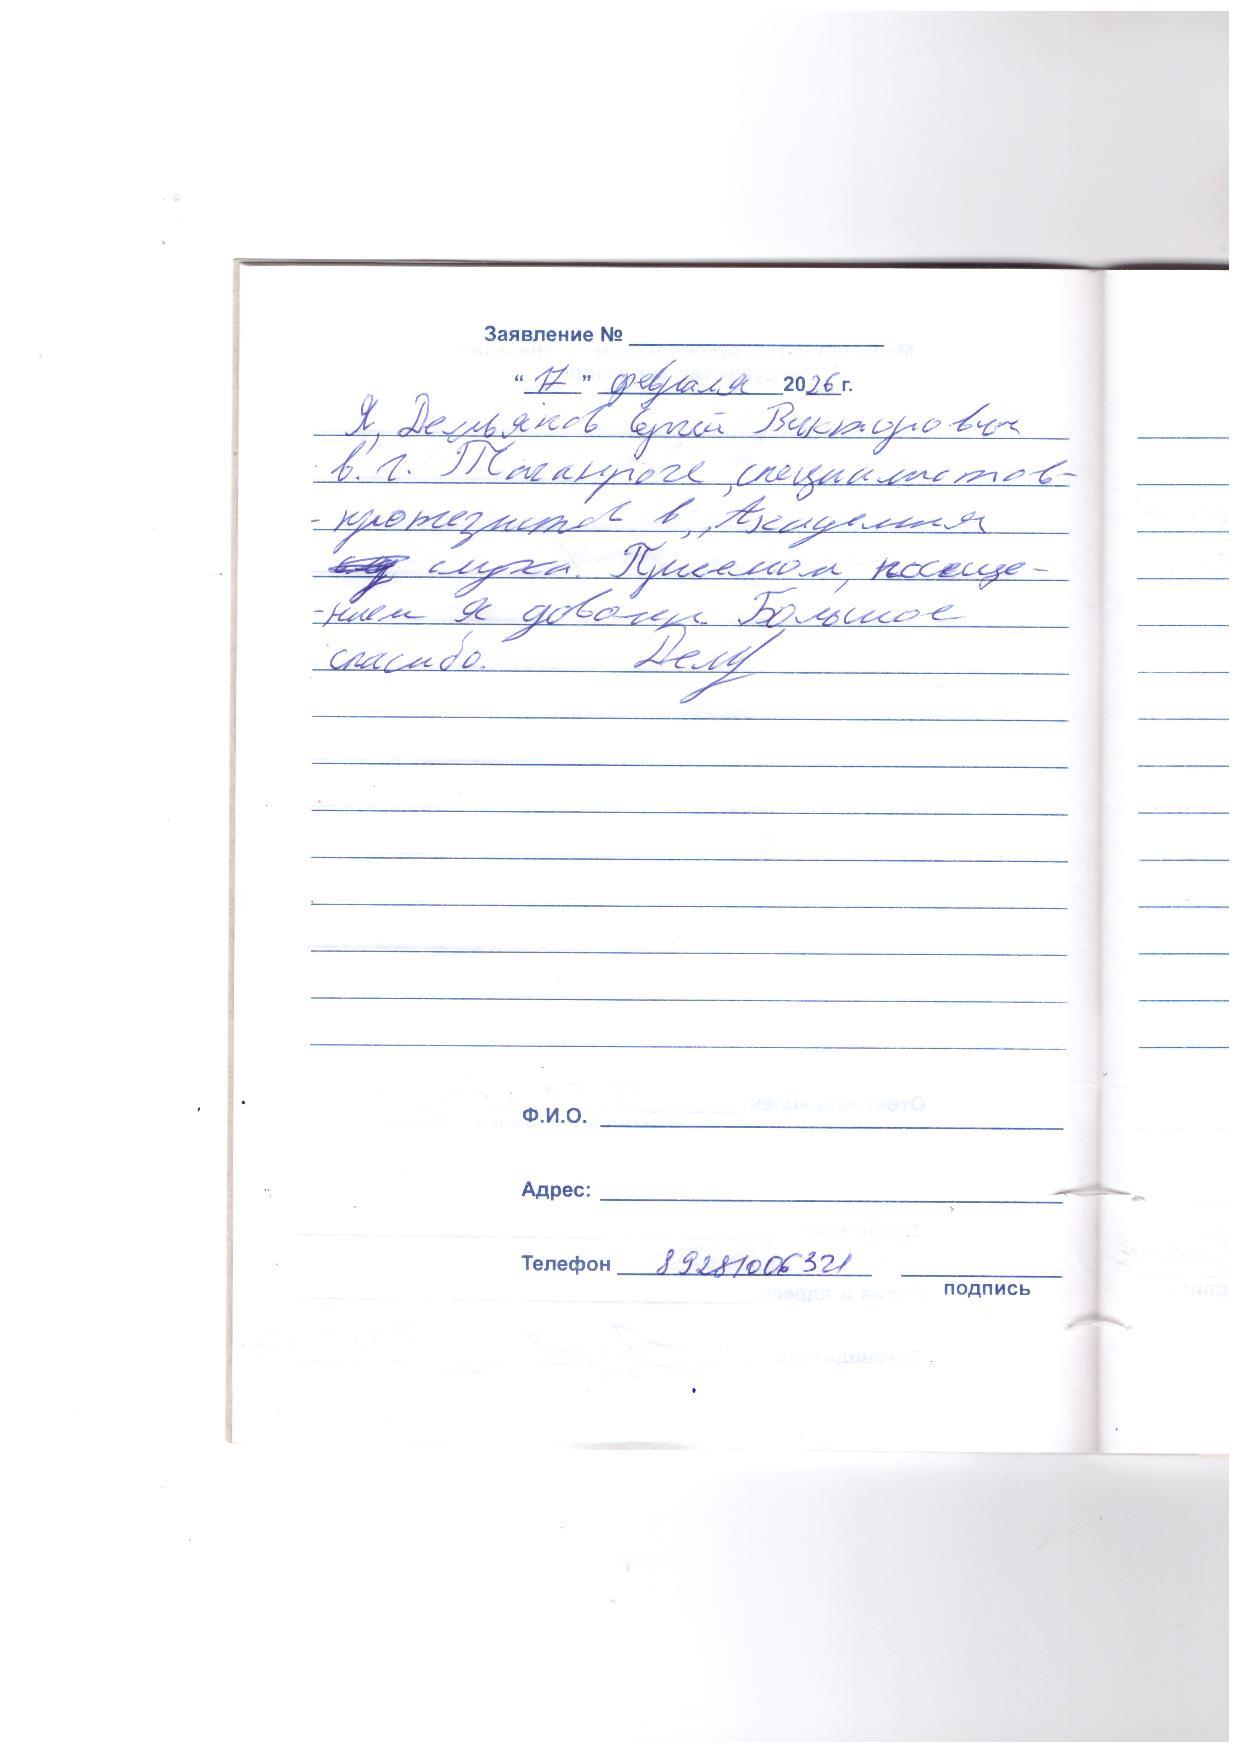 Заявление №
“ 17 ” февраля 2026 г.
Я, Демьянов Сергей Викторович
в г. Таганроге, специалистов-
-протезистов в „Академия
слуха. Приемом, посеще-
-нием я доволен. Большое
спасибо.
Ф.И.О.
Адрес:
Телефон 89281006321
подпись